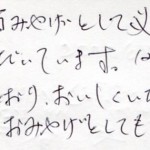 おみやげとして
びています。
おり、おいしくい
おみやげとしても